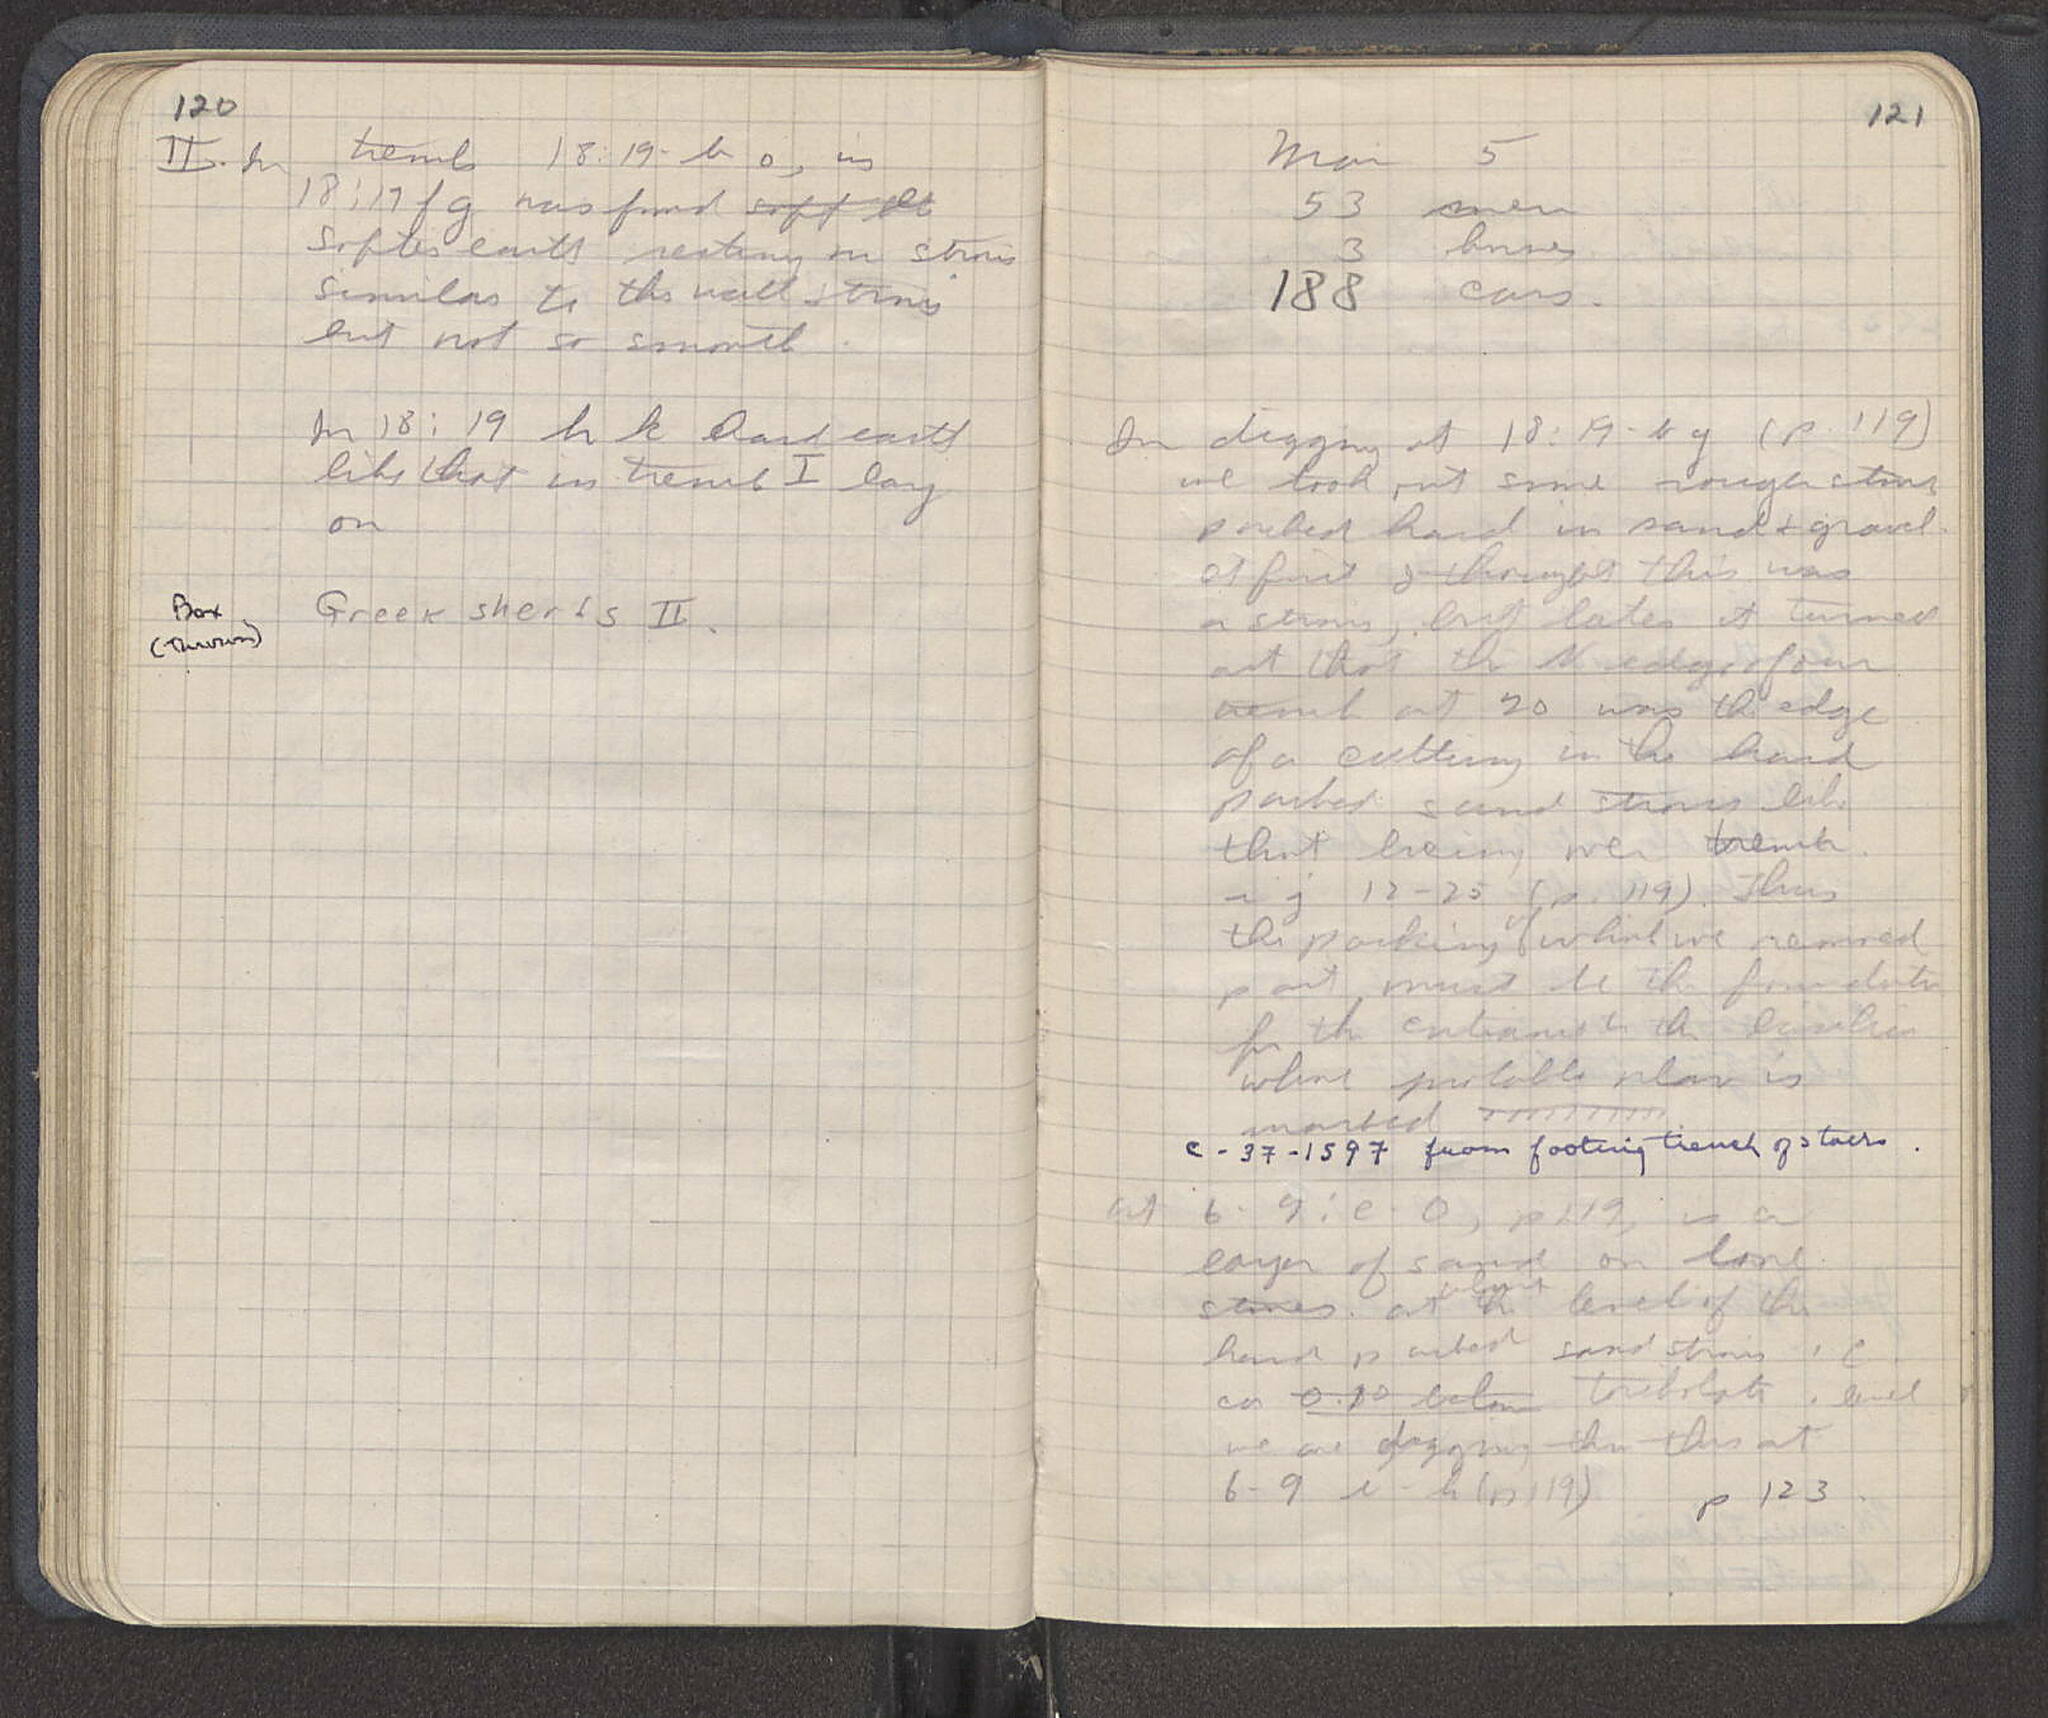 120
II. In trench 18:19-h o, in
18:19 f g was found soft st
softer earth resting on stosis
similar to the wall stosis
but not so smooth.
In 18:19 h k hard earth
like that in trench I lay
on
Box
(thrown)
Greek sherds II.
121
Mar 5
53 men
3 horses
188 cars.
In digging at 18:19-k g (p. 119)
we took out some rough stones
packed hard in sand + gravel.
At first I thought this was
a stosis, but later it turned
out that the N edge of our
trench at 20 was the edge
of a cutting in the hard
packed sand stosis like
that being over trench
j 12-25 (p. 119). Thus
the packing of which we removed
part must be the foundation
for the entrance to the basilica
whose probable plan is
marked
C-37-1597 from footing trench of stairs.
At 6-9: e-o, p 119, is a
layer of sand on loose
stones. at about the level of the
hard packed sand stosis, i.e.
ca 0.10 below level
we are digging thru this at
6-9 e-h (p 119) p 123.